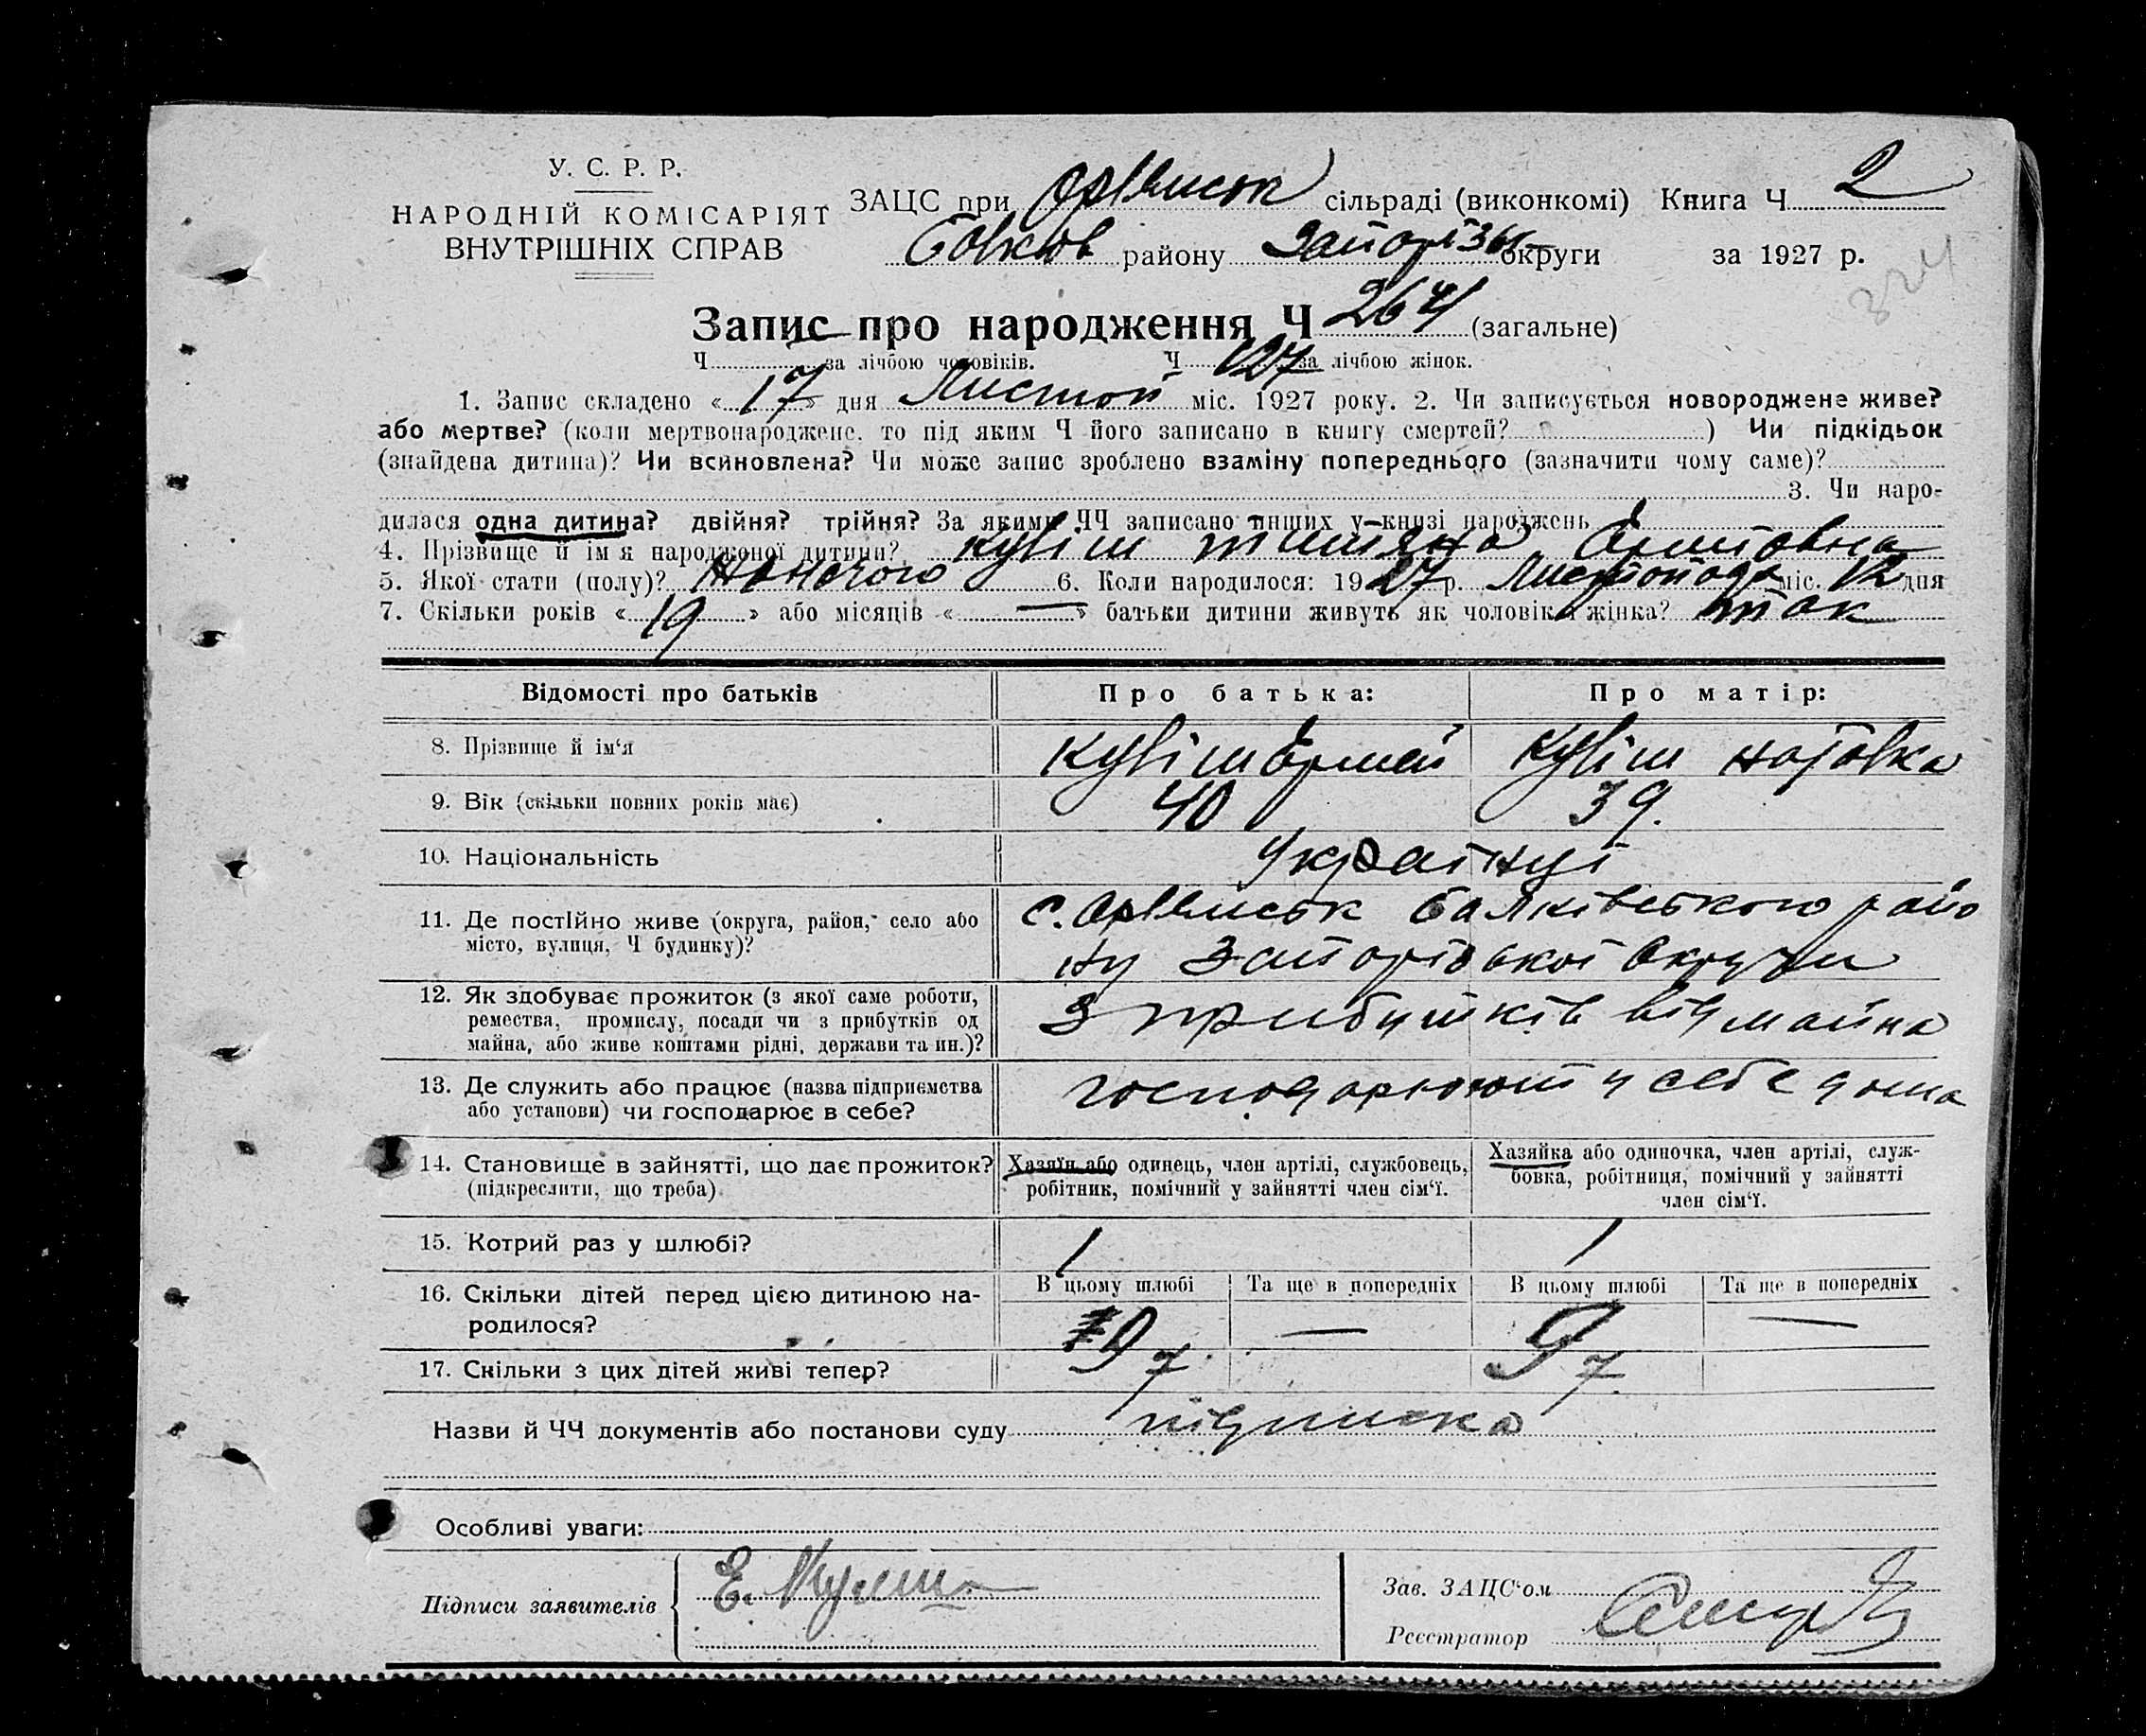 У. С. Р. Р.
НАРОДНІЙ КОМІСАРІЯТ
ВНУТРІШНІХ СПРАВ
ЗАЦС при сільраді (виконкомі) Книга Ч. 2
району округи за 1927 р.
324
Запис про народження Ч 264 (загальне)
Ч за лічбою чоловіків. Ч 127 за лічбою жінок.
1. Запис складено «17» дня Листоп міс. 1927 року. 2. Чи записується новороджене живе?
або мертве? (коли мертвонароджене, то під яким Ч його записано в книгу смертей? ) Чи підкідьок
(знайдена дитина)? Чи всиновлена? Чи може запис зроблено взаміну попереднього (зазначити чому саме)?
3. Чи наро-
дилася одна дитина? двійня? трійня? За якими ЧЧ записано инших у книзі народжень
4. Прізвище й ім'я народженої дитини? Куліш Титяна
5. Якої стати (полу)? Жіночого 6. Коли народилося: 1927 р. Листопода міс. 12 дня
7. Скільки років «19» або місяців «—» батьки дитини живуть як чоловік й жінка? так
Відомості про батьків Про батька: Про матір:
8. Прізвище й ім'я Куліш Куліш
9. Вік (скільки повних років має) 40 39.
10. Національність Українці
11. Де постійно живе (округа, район, село або с. балківського райо
місто, вулиця, Ч будинку)? ну Запорізької Округи
12. Як здобуває прожиток (з якої саме роботи, З прибутків від майна
ремества, промислу, посади чи з прибутків од
майна, або живе коштами рідні, держави та ин.)?
13. Де служить або працює (назва підприємства господарюют у себе дома
або установи) чи господарює в себе?
14. Становище в зайнятті, що дає прожиток? Хазяїн або одинець, член артілі, службовець, Хазяйка або одиночка, член артілі, служ-
(підкреслити, що треба) робітник, помічний у зайнятті член сім'ї. бовка, робітниця, помічний у зайнятті
член сім'ї.
15. Котрий раз у шлюбі? 1 1
В цьому шлюбі Та ще в попередніх В цьому шлюбі Та ще в попередніх
16. Скільки дітей перед цією дитиною на- 9 — 9 —
родилося?
17. Скільки з цих дітей живі тепер? 7 7
Назви й ЧЧ документів або постанови суду підписка
Особливі уваги:
Підписи заявителів Е. Кулиш
Зав. ЗАЦС'ом
Реєстратор